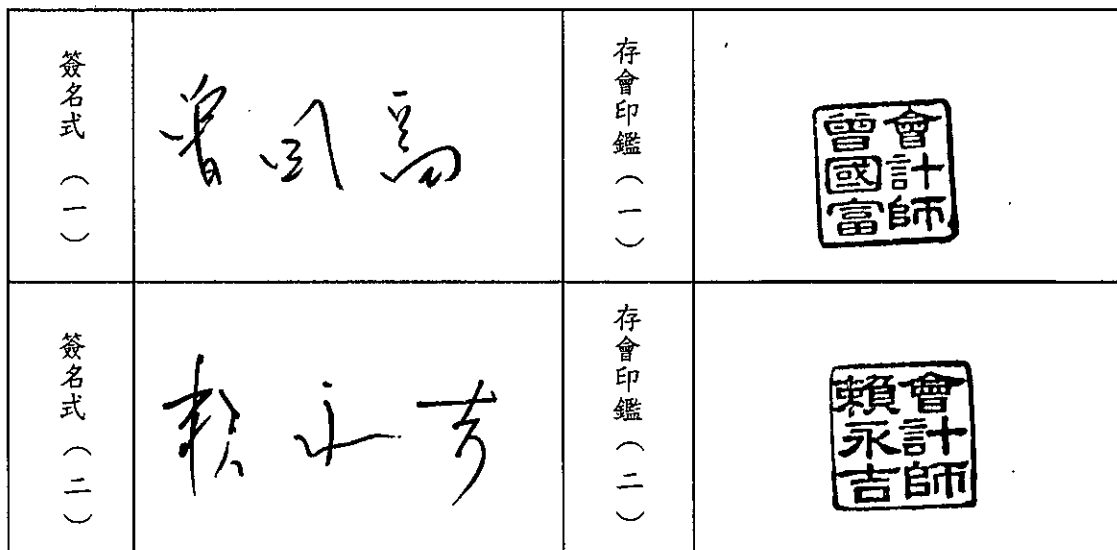 簽名式（一）
曾国富
存會印鑑（一）
會計師
曾國富
簽名式（二）
賴永吉
存會印鑑（二）
會計師
賴永吉